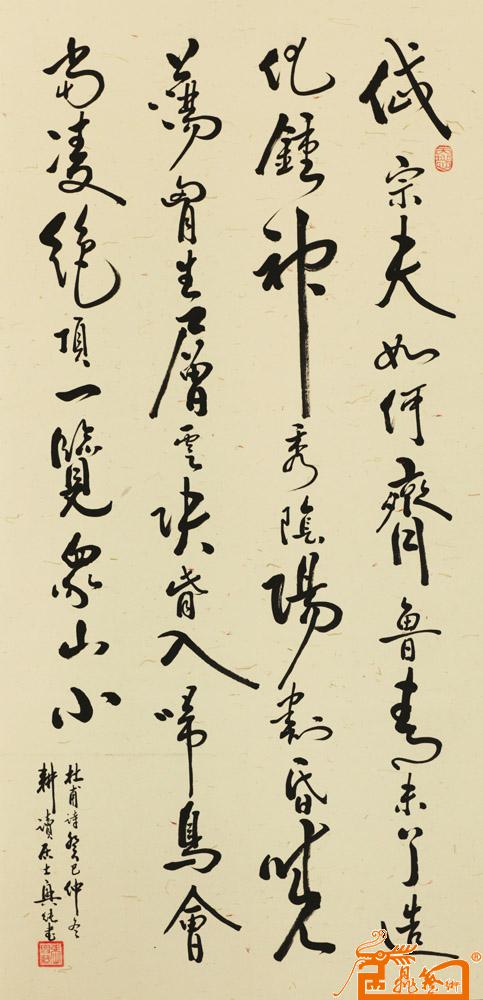 岱宗夫如何齊魯青未了造
化鍾神秀陰陽割昏曉
蕩胷生層雲決眥入歸鳥會
當凌絕頂一覽眾山小
杜甫詩癸巳仲冬
耕讀居士興書